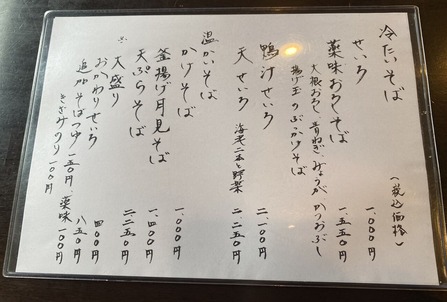 冷たいそば
（税込価格）
せいろ 一、〇〇〇円
薬味おろしそば 一、五五〇円
大根おろし 青ねぎ、みょうが かつおぶし
揚げ玉のぶっかけそば
鴨汁せいろ 二、一〇〇円
天せいろ 海老二本と野菜 二、二五〇円
温かいそば
かけそば 一、〇〇〇円
釜揚げ月見そば 一、四〇〇円
天ぷらそば 二、二五〇円
大盛り 四〇〇円
おかわりせいろ 八五〇円
追加 そばつゆ 一五〇円、薬味 一〇〇円
きざみのり 一〇〇円